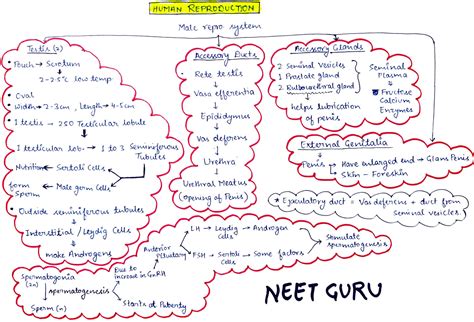 HUMAN REPRODUCTION
Male repro system
Testis (2)
• Pouch → Scrotum
2-2.5°C low temp
• Oval
• Width → 2-3cm, Length → 4-5cm
• 1 testis → 250 Testicular lobule
• 1 testicular lob → 1 to 3 Seminiferous
Tubules
Nutrition ← Sertoli Cells
form ← Male germ cells
Sperm
• Outside seminiferous tubules
Interstitial / Leydig Cells
make Androgens
Accessory Ducts
• Rete testis
Vasa efferentia
Epididymus
Vas deferens
Urethra
Urethral Meatus
(Opening of Penis)
Accessory Glands
2 Seminal Vesicles
1 Prostate gland
2 Bulbourethral gland
helps lubrication
of penis
Seminal
Plasma
Fructose
Calcium
Enzymes
External Genitalia
Penis → Have enlarged end → Glans Penis
Skin - Foreskin
* Ejaculatory duct = Vas deferens + duct from
Seminal vesicles.
Spermatogonia
(2n)
spermatogenesis
Sperm (n)
Due to
increase in GnRH
Starts at Puberty
Anterior
Pituitary
LH → Leydig → Androgen
Cells
FSH → Sertoli → Some factors
Cells
Stimulate
spermatogenesis
NEET GURU